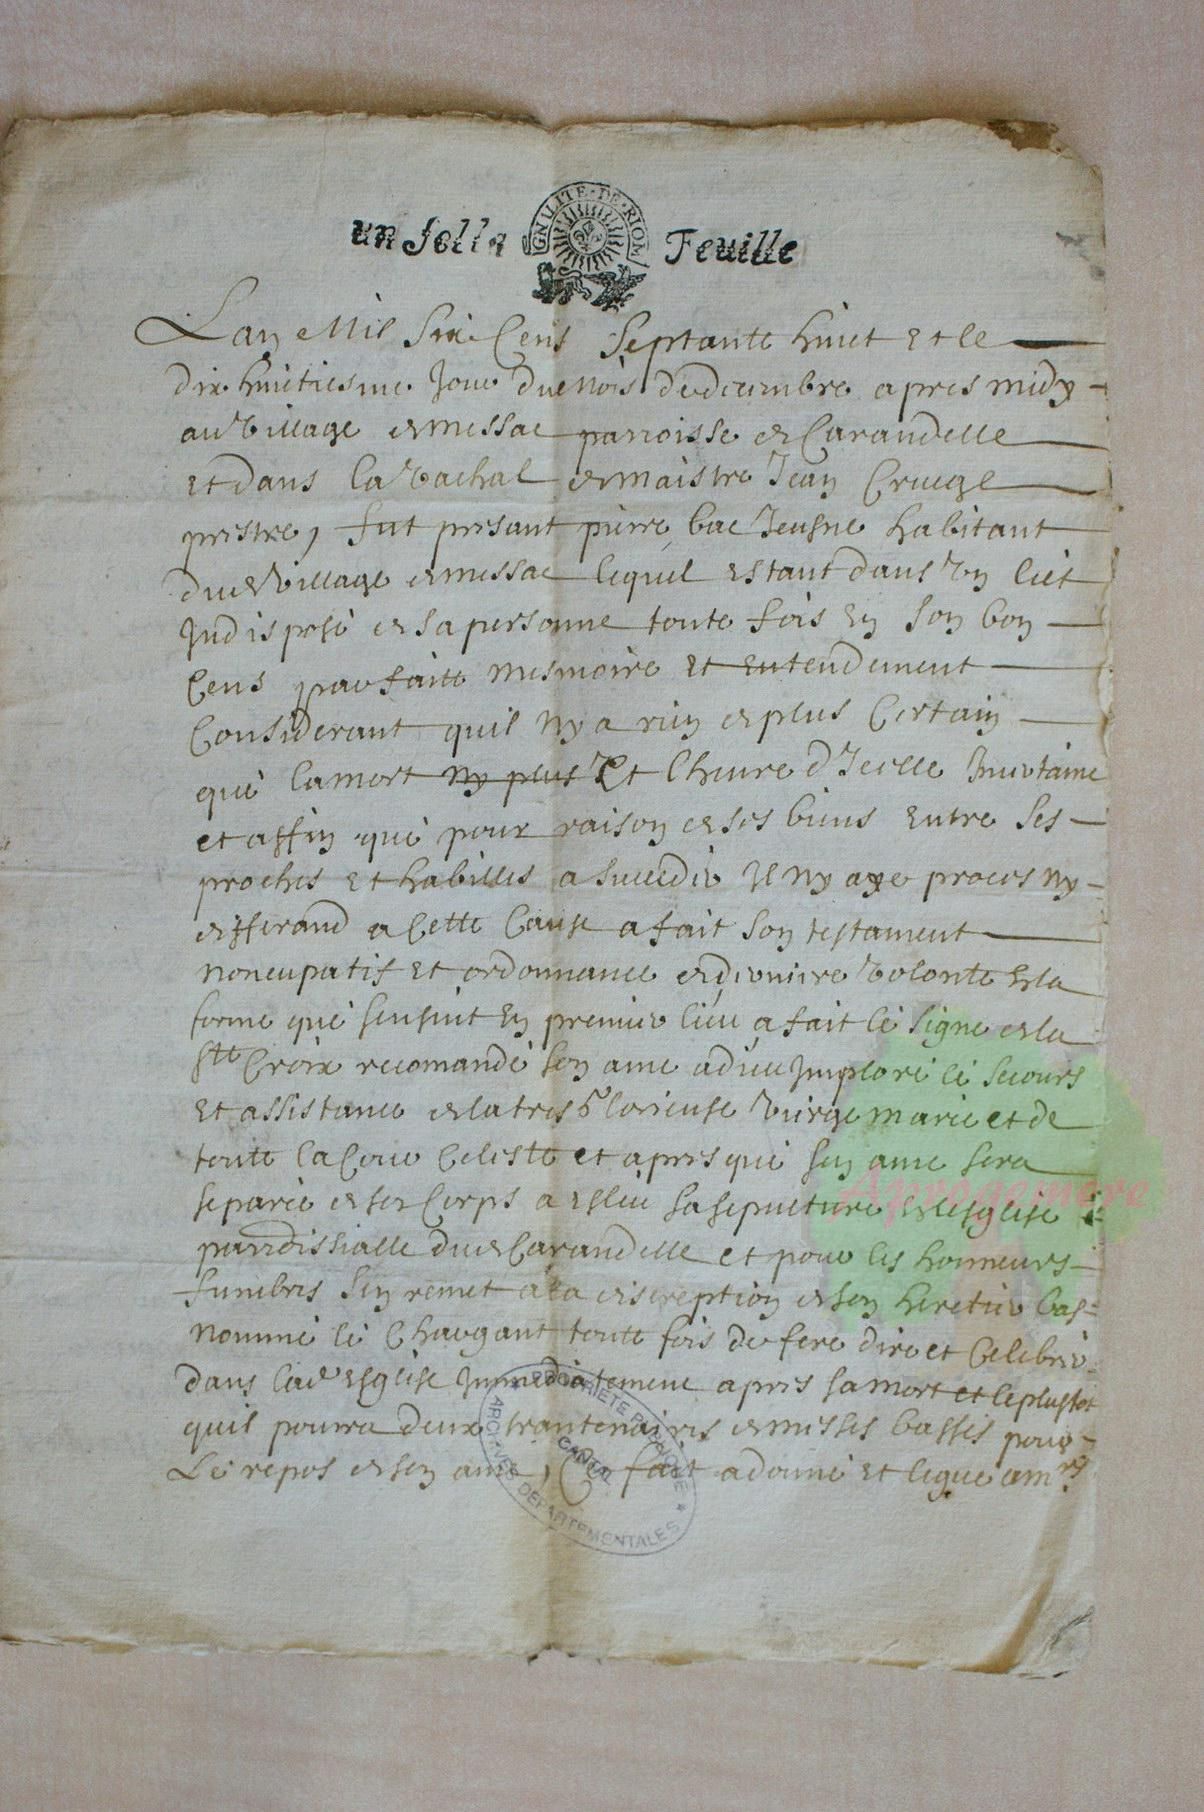 un solls Feuille
GNRLITE·DE·RIOM
Lan Mil Six Cens Septante huict et le
dix huictiesme Jour du mois de decembre apres midy
au Village de messac parroisse de Carandelle
et dans la Vachal de maistre Jean Cruege
prestre, fut presant pierre bac Jeusne habitant
dud Village de messac lequel estant dans Un lict
Indisposé de sa personne toute fois En son bon
Cens parfaitte mesmoire et entendement
Considerant quil ny a rien de plus Certain
que la mort ny plus Et lheure d'Icelle Incertaine
et affin que pour raison de ses biens entre ses
proches et habilles a succeder Il ny aye proces ny
differand a Cette Cause a fait son testament
noncupatif et ordonnance de derniere Volonte En la
forme que sensuit En premier lieu a fait le signe de la
Ste Croix recomandé son ame a dieu Imploré le secours
et assistance de la tres Glorieuse Vierge marie et de
toute la Cour Celeste et apres que son ame sera
separée de son Corps a esleu sa sepulture En lesglise
parroissialle dud Carandelle et pour les honneurs
funebres sen remet a la discreption de son heretier bas
nommé le Chargant toute fois de fere dire et Celebrer
dans lad Esglise Immediatement apres sa mort et le plustot
quil pourra deux trantenaires de messes basses pour
Le repos de son ame, Ce fait a donné et legué a mrs
PROPRIETE PUBLIQUE
CANTAL
ARCHIVES DEPARTEMENTALES
Aprogemere